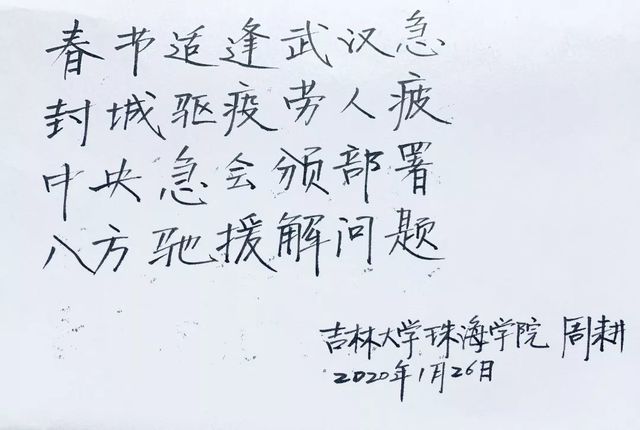 春节适逢武汉急
封城驱疫劳人疲
中央急会颁部署
八方驰援解问题
吉林大学珠海学院 周耕
2020年1月26日